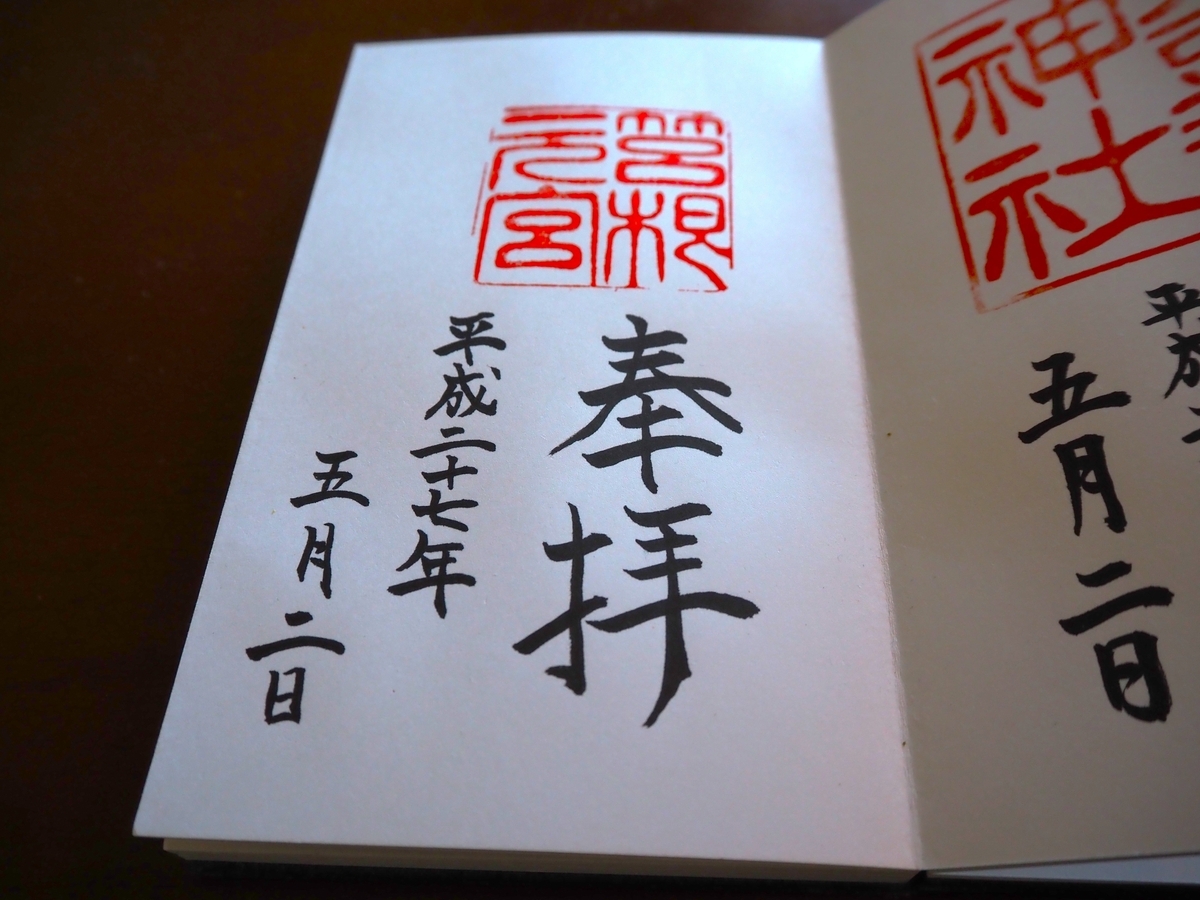 神社
五月二日
筥根
元宮
奉拝
平成二十七年
五月二日